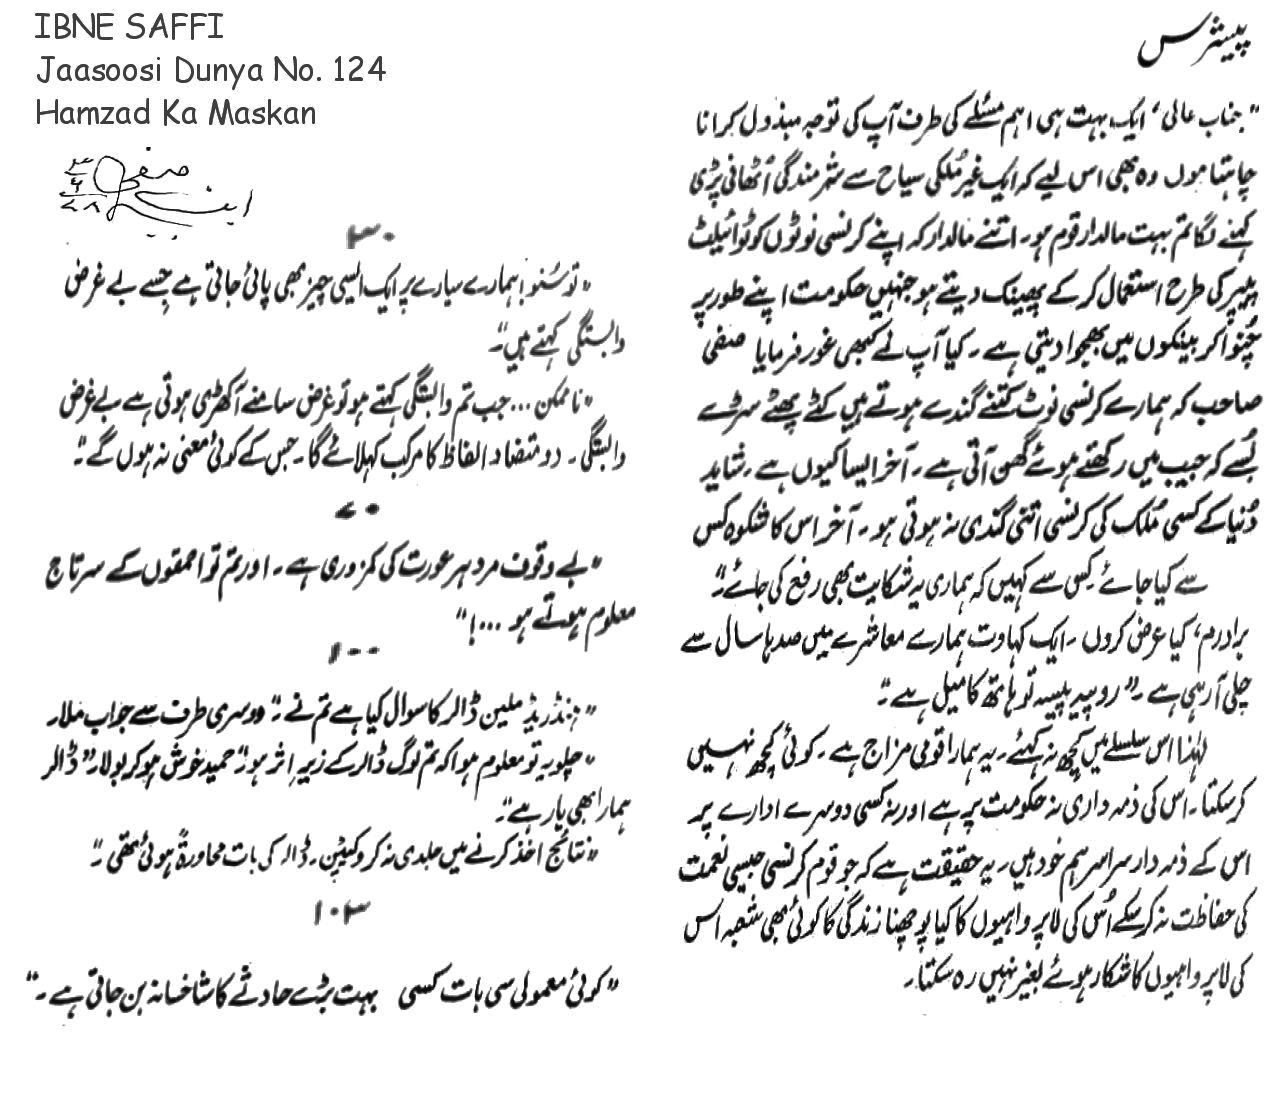 IBNE SAFFI
Jaasoosi Dunya No. 124
Hamzad Ka Maskan
ابن صفی
پیشرس
"جناب عالی، ایک بہت ہی اہم مسئلے کی طرف آپ کی توجہ مبذول کرانا
چاہتا ہوں وہ بھی اس لیے کہ ایک غیر مُلکی سیاح سے شرمندگی اُٹھانی پڑی
کہنے لگا تم بہت مالدار قوم ہو۔ اتنے مالدار کہ اپنے کرنسی نوٹوں کو ٹوائیلٹ
پیپر کی طرح استعمال کر کے پھینک دیتے ہو جنہیں حکومت اپنے طور پر
چُنوا کر بینکوں میں بھجوا دیتی ہے۔ کیا آپ نے کبھی غور فرمایا صفی
صاحب کہ ہمارے کرنسی نوٹ کتنے گندے ہوتے ہیں کٹے پھٹے سڑے
بُسے کہ جیب میں رکھتے ہوئے گھن آتی ہے۔ آخر ایسا کیوں ہے۔ شاید
دُنیا کے کسی مُلک کی کرنسی اتنی گندی نہ ہوتی ہو۔ آخر اس کا شکوہ کس
سے کیا جائے کِس سے کہیں کہ ہماری یہ شکایت بھی رفع کی جائے۔"
برادرم، کیا عرض کروں۔ ایک کہاوت ہمارے معاشرے میں صدہا سال سے
چلی آ رہی ہے۔ "روپیہ پیسہ تو ہاتھ کا میل ہے۔"
لہٰذا اس سلسلے میں کچھ نہ کہئے۔ یہ ہمارا قومی مزاج ہے۔ کوئی کچھ نہیں
کر سکتا۔ اس کی ذمہ داری نہ حکومت پر ہے اور نہ کسی دوسرے ادارے پر
اس کے ذمہ دار سراسر ہم خود ہیں۔ یہ حقیقت ہے کہ جو قوم کرنسی جیسی نعمت
کی حفاظت نہ کر سکے اُس کی لاپرواہیوں کا کیا پوچھنا زندگی کا کوئی بھی شعبہ اس
کی لاپرواہیوں کا شکار ہوئے بغیر نہیں رہ سکتا۔
۳۰
"تو سُنو! ہمارے سیارے پر ایک ایسی چیز بھی پائی جاتی ہے جِسے بے غرض
وابستگی کہتے ہیں"۔
"ناممکن... جب تم وابستگی کہتے ہو تو غرض سامنے آ کھڑی ہوتی ہے بے غرض
وابستگی۔ دو متضاد الفاظ کا مرکب کہلائے گا۔ جس کے کوئی معنی نہ ہوں گے۔"
۷۰
"بے وقوف مرد ہر عورت کی کمزوری ہے۔ اور تم تو احمقوں کے سرتاج
معلوم ہوتے ہو ...!"
۱۰۰
"ہنڈریڈ ملین ڈالر کا سوال کیا ہے تم نے۔" دوسری طرف سے جواب ملا۔
"چلو یہ تو معلوم ہوا کہ تم لوگ ڈالر کے زیرِ اثر ہو" حمید خوش ہو کر بولا۔ "ڈالر
ہمارا بھی یار ہے"۔
"نتائج اخذ کرنے میں جلدی نہ کرو کیپٹن۔ ڈالر کی بات محاورۃً ہوئی تھی۔"
۱۰۳
"کوئی معمولی سی بات کسی بہت بڑے حادثے کا شاخسانہ بن جاتی ہے۔"